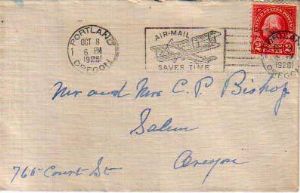 PORTLAND
OCT 8
6 PM
1928
OREGON
1
AIR-MAIL
SAVES TIME
PORTLAND
1928
OREGON
2 2
Mr and Mrs C. P. Bishop
Salem
Oregon
765 Court St